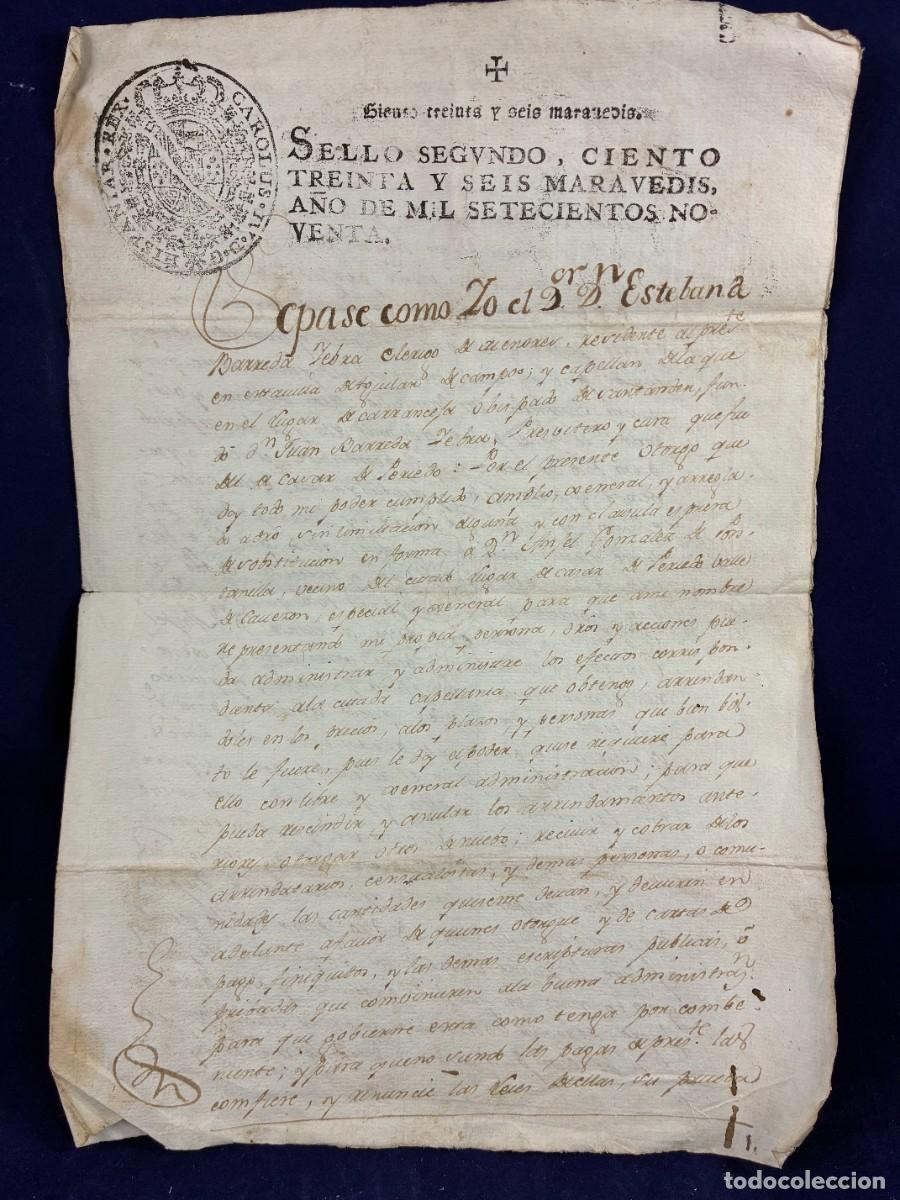 CAROLUS · IV · D · G · HISPANIAR · REX ·
Siento treinta y seis maravedis.
SELLO SEGVNDO, CIENTO
TREINTA Y SEIS MARAVEDIS,
AÑO DE MIL SETECIENTOS NO-
VENTA.
Sepase como Yo el D.or D.n Esteban de
Barreda Yebra Clerigo de menores, residente al pres.te
en esta villa de Aguilar de campoo; y capellan de la que
en el lugar de Carranceja obispado de Santander, fun-
dó D.n Juan Barreda Yebra, Presvitero y cura que fue
del de Casar de Periedo: Por el presente otorgo que
doy todo mi poder cumplido, amplio, general, y arregla-
do a dro, sin limitacion alguna y con clausula espresa
de sobstitucion en forma a D.n Angel Gonzalez de
vecino del citado lugar de Casar de Periedo valle
de Cauezon, especial y general para que a mi nombre
representando mi propia persona, dros y acciones pue-
da administrar y administre los efectos correspon-
dientes a la citada capellania que obtengo, arrendan-
doles en los precios, a los plazos y personas que bien bis-
to le fuere, pues le doy el poder que se requiere para
ello con libre y general administracion; para que
pueda rescindir y anular los arrendamientos ante-
riores, otorgar otros de nuebo; recivir y cobrar de los
arrendatarios, censualistas, y demas personas, o comu-
nidades las cantidades que se me devan, y devieren en
adelante a favor de quienes otorgue y de cartas de
pago, finiquitos, y las demas escripturas publicas, o
pribadas que combinieren a la buena administraz.n
para que gobierne esta como tenga por combe-
niente; y para que no siendo las pagas de pres.te las
confiese, y renuncie las leies de ellas, su prueba
1.
todocoleccion
todocoleccion.net